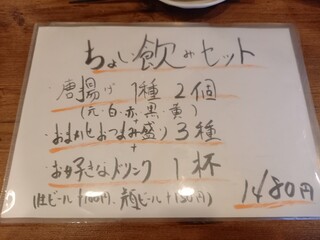 ちょい飲みセット
・唐揚げ 1種 2個
(元・白・赤・黒・黄)
+
・おまかせおつまみ盛り 3種
+
・お好きなドリンク 1杯
(生ビール+100円、瓶ビール+150円)
1480円